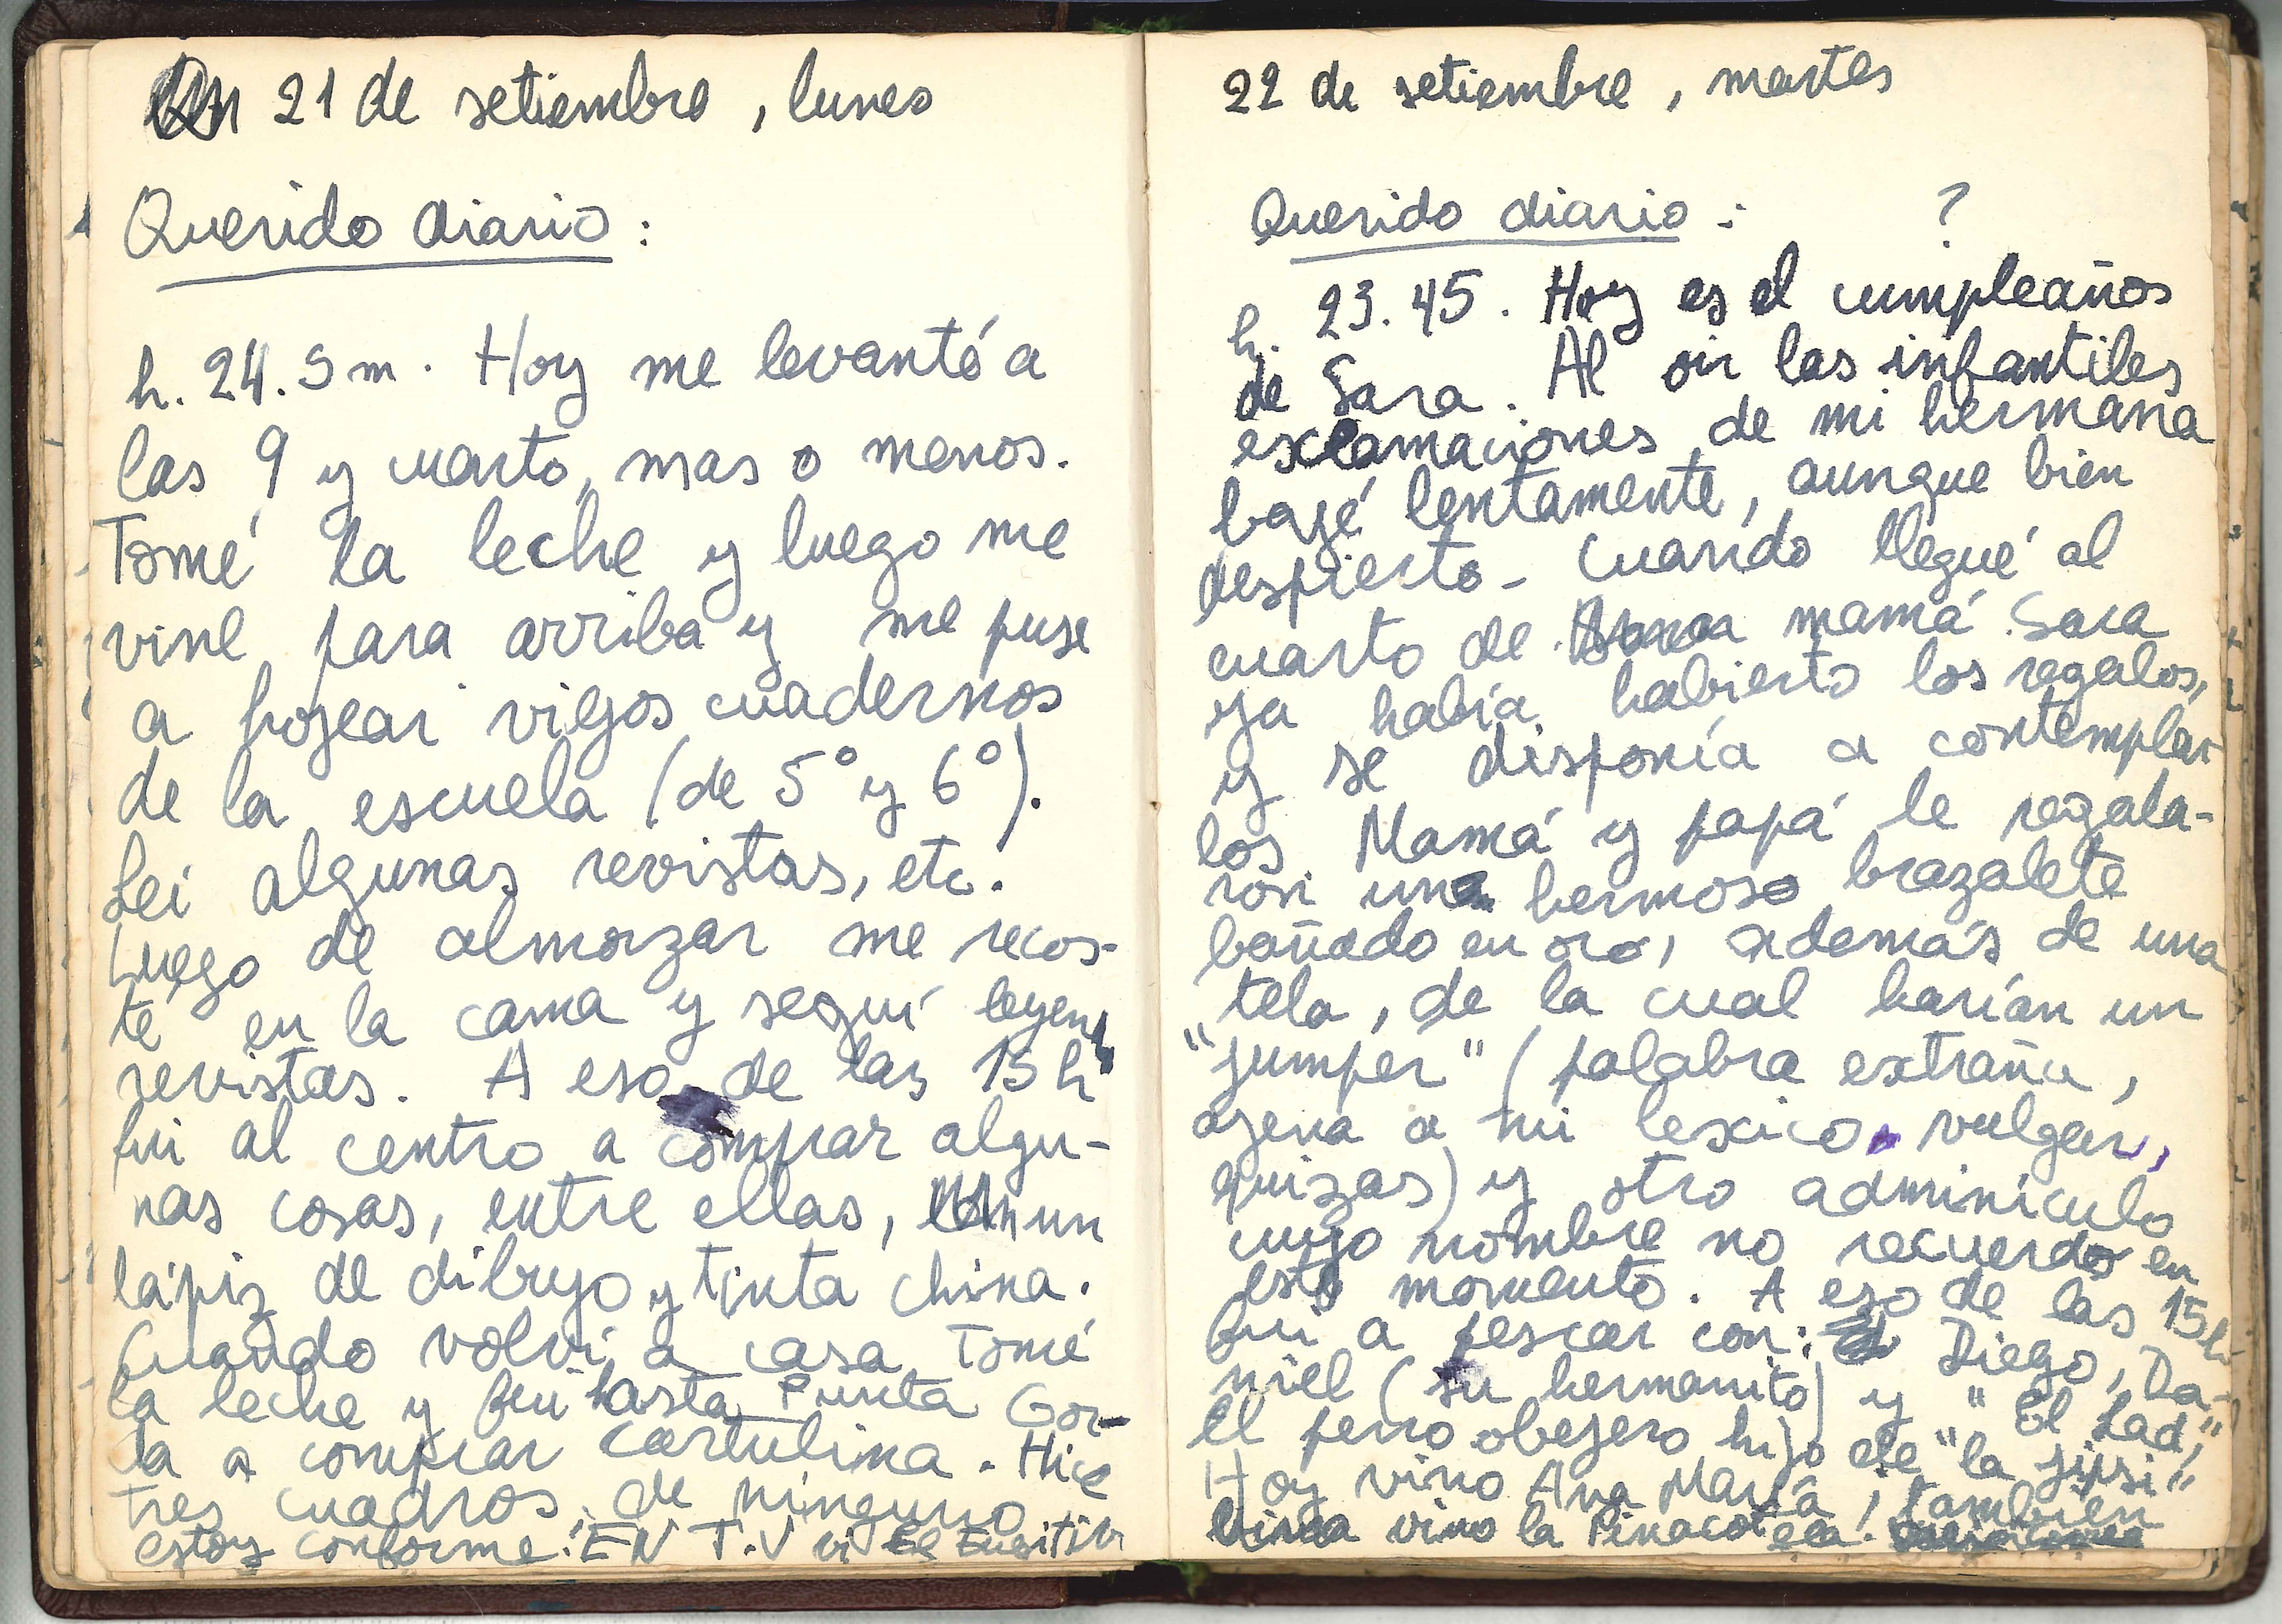 21 de setiembre, lunes
Querido diario:
h. 24.5 m. Hoy me levanté a
las 9 y cuarto, mas o menos.
Tomé la leche y luego me
vine para arriba y me puse
a hojear viejos cuadernos
de la escuela (de 5° y 6°).
Leí algunas revistas, etc.
Luego de almorzar me recos-
té en la cama y seguí leyendo
revistas. A eso de las 15 h
fui al centro a comprar algu-
nas cosas, entre ellas, un
lápiz de dibujo y tinta china.
Cuando volví a casa tomé
la leche y fui hasta Punta Gor-
da a comprar cartulina. Hice
tres cuadros, de ninguno
estoy conforme. EN T.V vi El Fugitivo
22 de setiembre, martes
Querido diario: ?
h. 23.45. Hoy es el cumpleaños
de Sara. Al oir las infantiles
exclamaciones de mi hermana
bajé lentamente, aunque bien
despierto. Cuando llegué al
cuarto de mamá Sara
ya había habierto los regalos,
y se disponía a contemplar
los. Mamá y papá le regala-
ron un hermoso brazalete
bañado en oro, además de una
tela, de la cual harían un
"jumper" (palabra extraña,
ajena a mi lexico vulgar,
quizas) y otro adminiculo
cuyo nombre no recuerdo en
este momento. A eso de las 15 h
fui a pescar con: Diego, Da-
niel (su hermanito) y "El Lad,"
el perro obejero hijo de "la jipsi"
Hoy vino Ana María, también
vino la Pinacoteca.